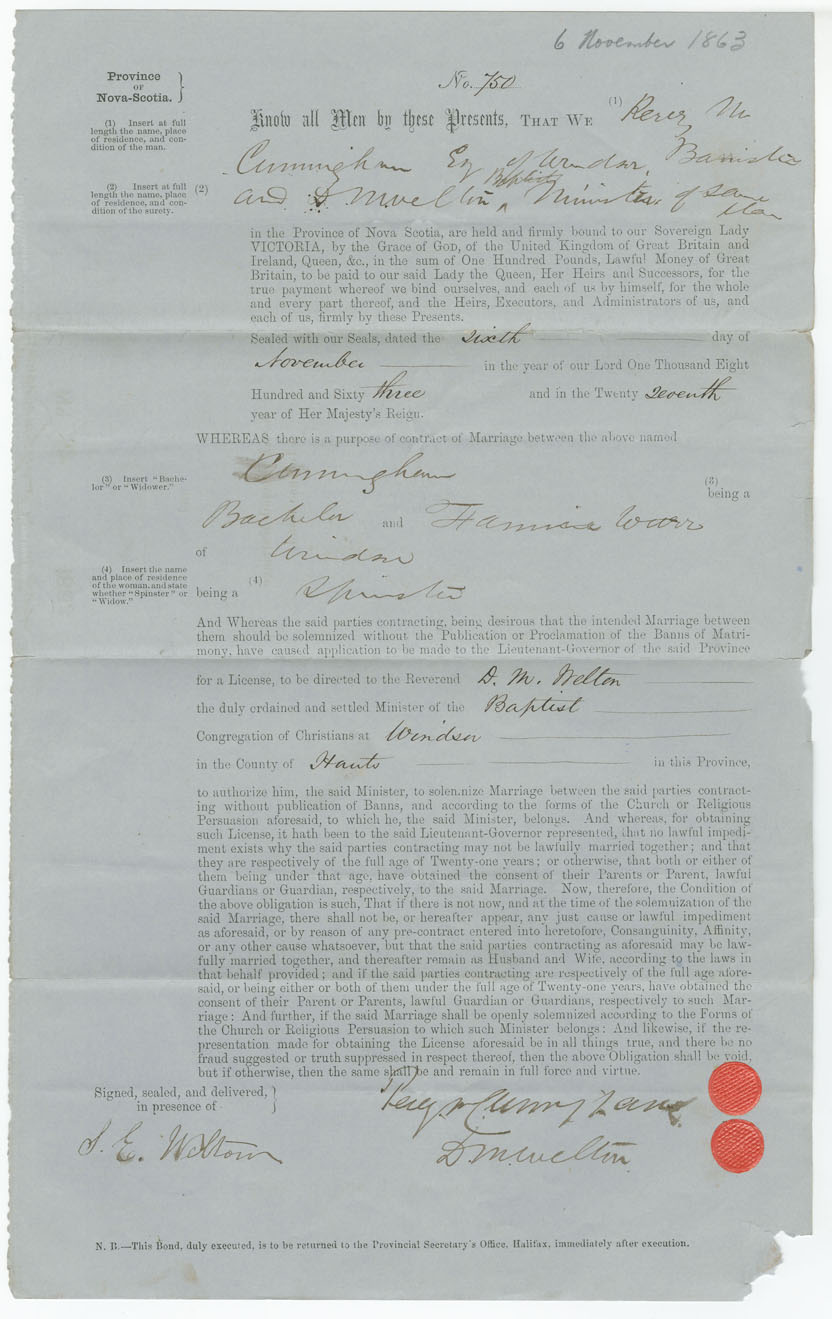 6 November 1863
Province
OF
Nova-Scotia.
No. 750
(1) Insert at full
length the name, place
of residence, and con-
dition of the man.
Know all Men by these Presents, THAT WE (1) Perez M
Cunningham Esq of Windsor, Barrister
(2) Insert at full
length the name, place
of residence, and con-
dition of the surety.
Baptist
(2) and D M Welton Minister of same
place
in the Province of Nova Scotia, are held and firmly bound to our Sovereign Lady
VICTORIA, by the Grace of GOD, of the United Kingdom of Great Britain and
Ireland, Queen, &c., in the sum of One Hundred Pounds, Lawful Money of Great
Britain, to be paid to our said Lady the Queen, Her Heirs and Successors, for the
true payment whereof we bind ourselves, and each of us by himself, for the whole
and every part thereof, and the Heirs, Executors, and Administrators of us, and
each of us, firmly by these Presents.
Sealed with our Seals, dated the sixth day of
November in the year of our Lord One Thousand Eight
Hundred and Sixty three and in the Twenty seventh
year of Her Majesty's Reign.
WHEREAS there is a purpose of contract of Marriage between the above named
Cunningham
(3) Insert "Bache-
lor" or "Widower."
(3)
being a
Bachelor and
of Windsor
(4) Insert the name
and place of residence
of the woman, and state
whether "Spinster" or
"Widow."
(4)
being a Spinster
And Whereas the said parties contracting, being desirous that the intended Marriage between
them should be solemnized without the Publication or Proclamation of the Banns of Matri-
mony, have caused application to be made to the Lieutenant-Governor of the said Province
for a License, to be directed to the Reverend D. M. Welton
the duly ordained and settled Minister of the Baptist
Congregation of Christians at Windsor
in the County of Hants in this Province,
to authorize him, the said Minister, to solemnize Marriage between the said parties contract-
ing without publication of Banns, and according to the forms of the Church or Religious
Persuasion aforesaid, to which he, the said Minister, belongs. And whereas, for obtaining
such License, it hath been to the said Lieutenant-Governor represented, that no lawful impedi-
ment exists why the said parties contracting may not be lawfully married together; and that
they are respectively of the full age of Twenty-one years; or otherwise, that both or either of
them being under that age, have obtained the consent of their Parents or Parent, lawful
Guardians or Guardian, respectively, to the said Marriage. Now, therefore, the Condition of
the above obligation is such, That if there is not now, and at the time of the solemnization of the
said Marriage, there shall not be, or hereafter appear, any just cause or lawful impediment
as aforesaid, or by reason of any pre-contract entered into heretofore, Consanguinity, Affinity,
or any other cause whatsoever, but that the said parties contracting as aforesaid may be law-
fully married together, and thereafter remain as Husband and Wife, according to the laws in
that behalf provided; and if the said parties contracting are respectively of the full age afore-
said, or being either or both of them under the full age of Twenty-one years, have obtained the
consent of their Parent or Parents, lawful Guardian or Guardians, respectively to such Mar-
riage: And further, if the said Marriage shall be openly solemnized according to the Forms of
the Church or Religious Persuasion to which such Minister belongs: And likewise, if the re-
presentation made for obtaining the License aforesaid be in all things true, and there be no
fraud suggested or truth suppressed in respect thereof, then the above Obligation shall be void,
but if otherwise, then the same shall be and remain in full force and virtue.
Signed, sealed, and delivered,
in presence of
Perez M Cunningham
S. E.
D M Welton
N. B.—This Bond, duly executed, is to be returned to the Provincial Secretary's Office, Halifax, immediately after execution.